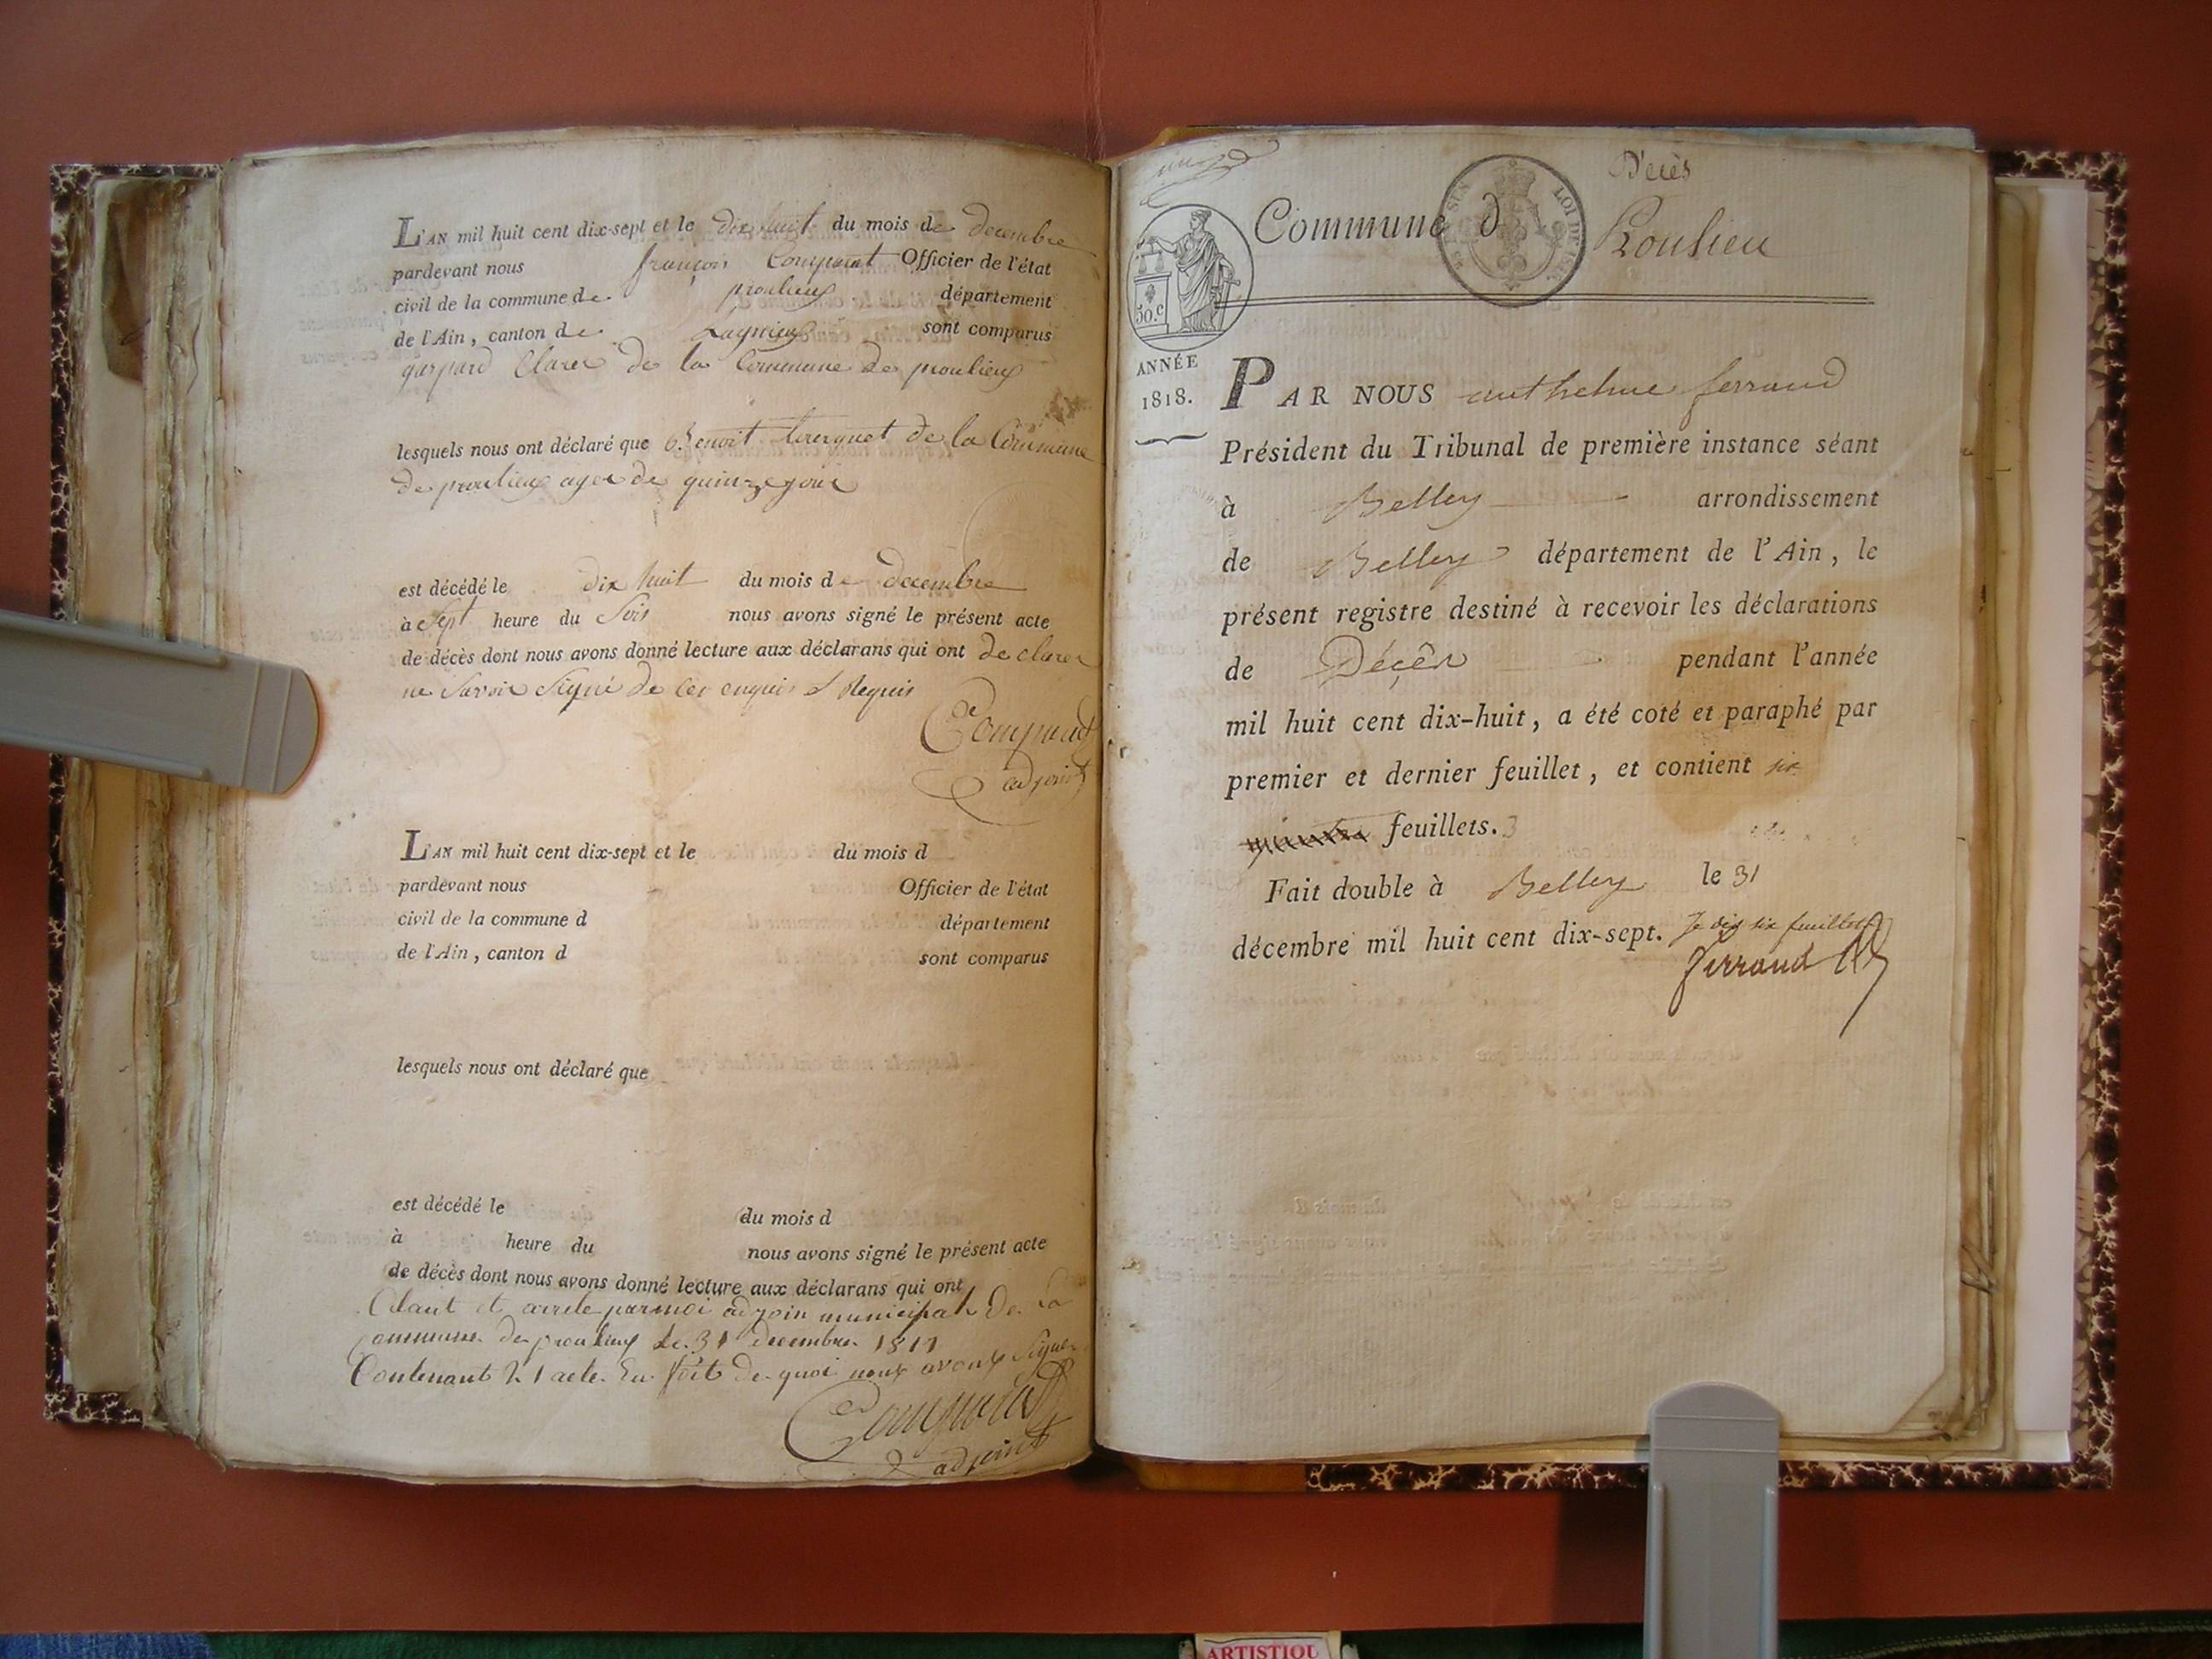 L'AN mil huit cent dix-sept et le dix huit du mois de decembre
pardevant nous françois Compoint Officier de l'état
civil de la commune de proulieux département
de l'Ain, canton de Lagnieux sont comparus
gaspard Clarer de la Commune de proulieux
lesquels nous ont déclaré que Benoit de la Commune
de proulieux agee de quinze jour
est décédé le dix huit du mois de decembre
à Sept heure du Soir nous avons signé le présent acte
de décès dont nous avons donné lecture aux déclarans qui ont declarer
ne Savoir Signé de Ce enquis & Requis
adjoint
L'AN mil huit cent dix-sept et le du mois d
pardevant nous Officier de l'état
civil de la commune d département
de l'Ain, canton d sont comparus
lesquels nous ont déclaré que
est décédé le du mois d
à heure du nous avons signé le présent acte
de décès dont nous avons donné lecture aux déclarans qui ont
Claut et arrete par moi adjoin municipal de La
Commune de proulieux Le 31 decembre 1817
Contenant 21 acte En foit de quoi nous avons Signer
adjoint
Décès
Commune d Proulieu
LOI DE
50.c
ANNÉE
1818.
PAR NOUS anthelme ferraud
Président du Tribunal de première instance séant
à Belley arrondissement
de Belley département de l'Ain, le
présent registre destiné à recevoir les déclarations
de Décès pendant l'année
mil huit cent dix-huit, a été coté et paraphé par
premier et dernier feuillet, et contient six
feuillets.
Fait double à Belley le 31
décembre mil huit cent dix-sept. Je dis six feuillets
ferraud
ARTISTIQU